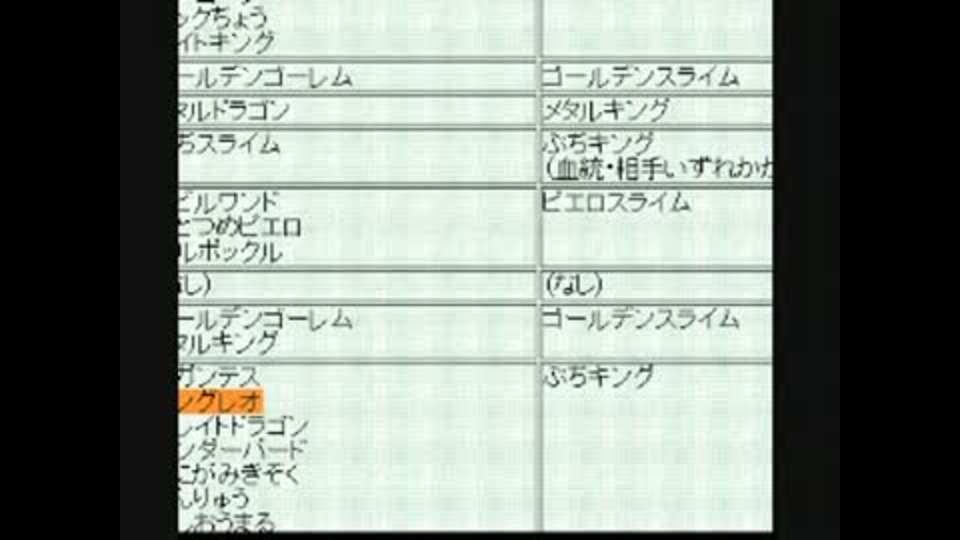 ックちょう
イトキング
ールデンゴーレム
ゴールデンスライム
タルドラゴン
メタルキング
ぢスライム
ぶちキング
(血統・相手いずれか
ビルワンド
とつめピエロ
ルポックル
ピエロスライム
し)
(なし)
ールデンゴーレム
タルキング
ゴールデンスライム
ガンテス
ングレオ
レイトドラゴン
ンダーバード
にがみきぞく
んりゅう
しおうまる
ぶちキング